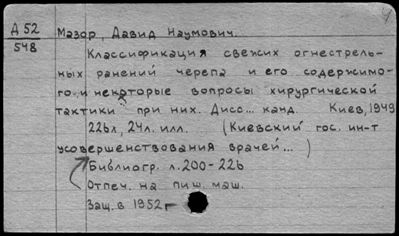 Д 52
548
Мазор, Давид Наумович.
Классификация свежих огнестрель-
ных ранений черепа и его содержимо-
го и некоторые вопросы хирургической
тактики при них. Дисс... канд. Киев, 1949
226л, 24л. илл. (Киевский гос. ин-т
усовершенствования врачей...)
Библиогр. л. 200-226
Отпеч. на пиш. маш.
Защ. в 1952г